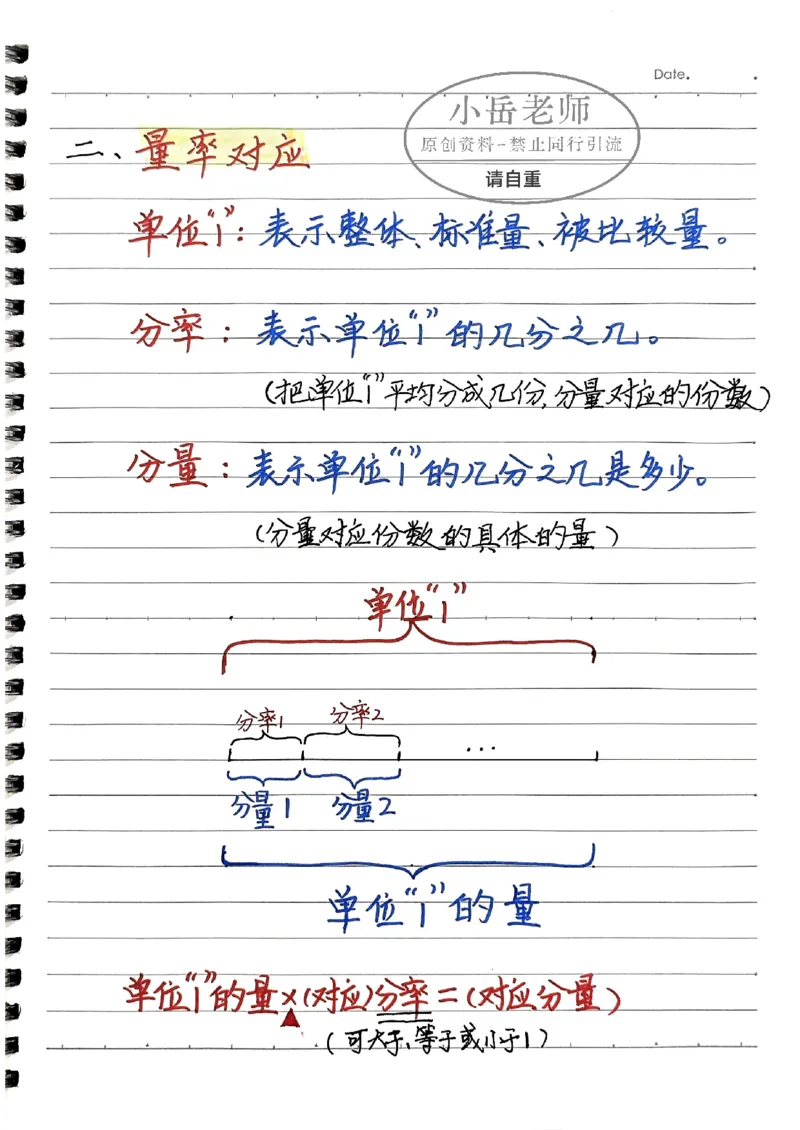 Date.
小岳老师
原创资料-禁止同行引流
请自重
二、量率对应
单位“1”：表示整体、标准量、被比较量。
分率：表示单位“1”的几分之几。
（把单位“1”平均分成几份，分量对应的份数）
分量：表示单位“1”的几分之几是多少。
（分量对应份数的具体的量）
单位“1”
分率1 分率2
...
分量1 分量2
单位“1”的量
单位“1”的量×（对应）分率=（对应分量）
（可大于、等于或小于1）